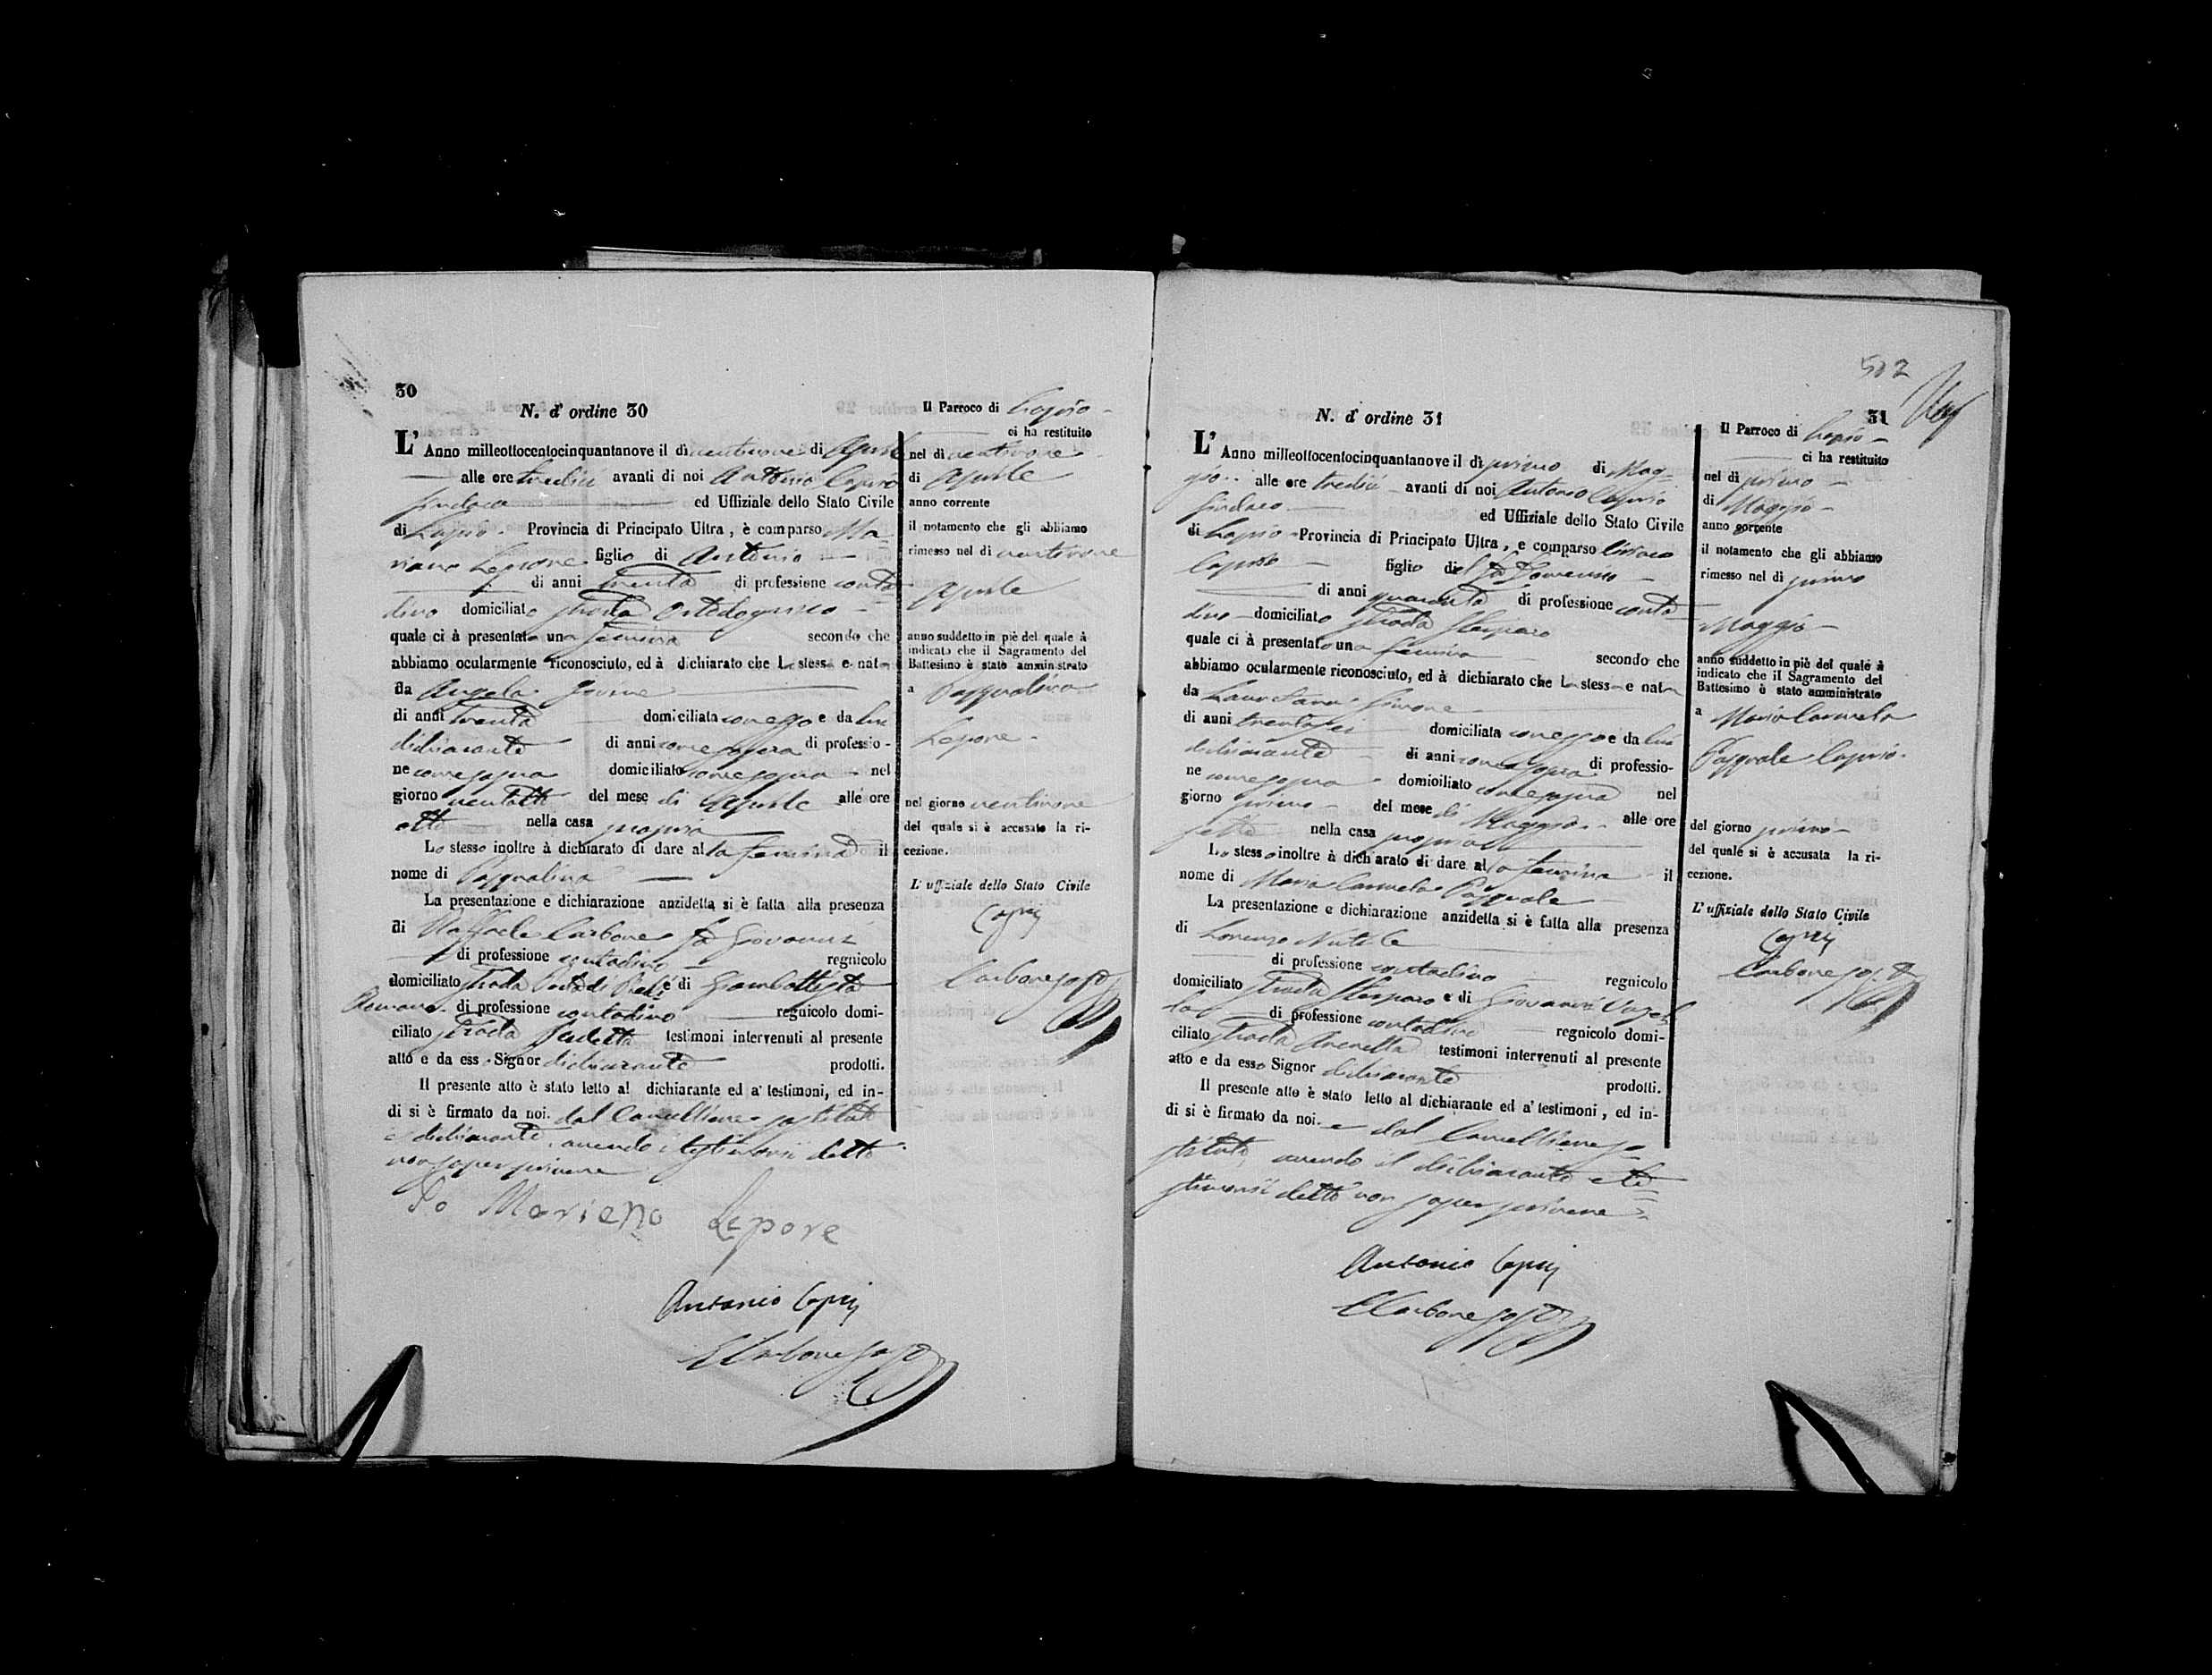 30
N. d' ordine 30
L' Anno milleottocentocinquantanove il dì ventinove di Aprile
alle ore tredici avanti di noi Antonio Caprio
Sindaco ed Uffiziale dello Stato Civile
di Lapio Provincia di Principato Ultra, è comparso Ma
riano Lepore figlio di Antonio
di anni trenta di professione conta
dino domiciliato strada
quale ci à presentato una femina secondo che
abbiamo ocularmente riconosciuto, ed à dichiarato che la stessa e nata
da Angela Iovine
di anni trenta domiciliata con esso e da lui
dichiarante di anni come sopra di professio-
ne come sopra domiciliato come sopra nel
giorno ventotto del mese di Aprile alle ore
otto nella casa propria
Lo stesso inoltre à dichiarato di dare alla femina il
nome di Pasqualina
La presentazione e dichiarazione anzidetta si è fatta alla presenza
di Raffaele Carbone fu Giovanni
di professione contadino regnicolo
domiciliato strada e di Giambattista
di professione contadino regnicolo domi-
ciliato strada testimoni intervenuti al presente
atto e da esso Signor dichiarante prodotti.
Il presente atto è stato letto al dichiarante ed a' testimoni, ed in-
di si è firmato da noi dal Cancelliere sostituto
e dichiarante, avendo i testimoni detto
non saper scrivere
Io Marieno Lepore
Antonio Caprio
Carbone sost
Il Parroco di Lapio
ci ha restituito
nel dì ventinove
di Aprile
anno corrente
il notamento che gli abbiamo
rimesso nel dì ventinove
Aprile
anno suddetto in piè del quale à
indicato che il Sagramento del
Battesimo è stato amministrato
a Pasqualina
Lepore
nel giorno ventinove
del quale si è accusato la ri-
cezione.
L' uffiziale dello Stato Civile
Caprio
Carbone sost
502
31
N. d' ordine 31
L' Anno milleottocentocinquantanove il dì primo di Mag-
gio alle ore tredici avanti di noi Antonio Caprio
Sindaco ed Uffiziale dello Stato Civile
di Lapio Provincia di Principato Ultra, e comparso Ciriaco
Caprio figlio del fu Domenico
di anni quaranta di professione conta
dino domiciliato strada
quale ci à presentato una femina secondo che
abbiamo ocularmente riconosciuto, ed à dichiarato che la stessa e nata
da Lauretana Simone
di anni trentasei domiciliata con esso e da lui
dichiarante di anni come sopra di professio-
ne come sopra domioiliato come sopra nel
giorno primo del mese di Maggio alle ore
sette nella casa propria
Lo stesso inoltre à dichiarato di dare alla femina il
nome di Maria Carmela Pasquale
La presentazione e dichiarazione anzidetta si è fatta alla presenza
di Lorenzo
di professione contadino regnicolo
domiciliato strada e di Giovanni
di professione contadino regnicolo domi-
ciliato strada testimoni intervenuti al presente
atto e da esso Signor dichiarante prodotti.
Il presente atto è stato letto al dichiarante ed a' testimoni, ed in-
di si è firmato da noi e dal Cancelliere so
stituto, avendo il dichiarante e te
stimoni detto non saper scrivere
Antonio Caprio
Carbone sost
Il Parroco di Lapio
ci ha restituito
nel dì primo
di Maggio
anno corrente
il notamento che gli abbiamo
rimesso nel dì primo
Maggio
anno suddetto in piè del quale à
indicato che il Sagramento del
Battesimo è stato amministrato
a Maria Carmela
Pasquale Caprio
del giorno primo
del quale si è accusata la ri-
cezione.
L' uffiziale dello Stato Civile
Caprio
Carbone sost